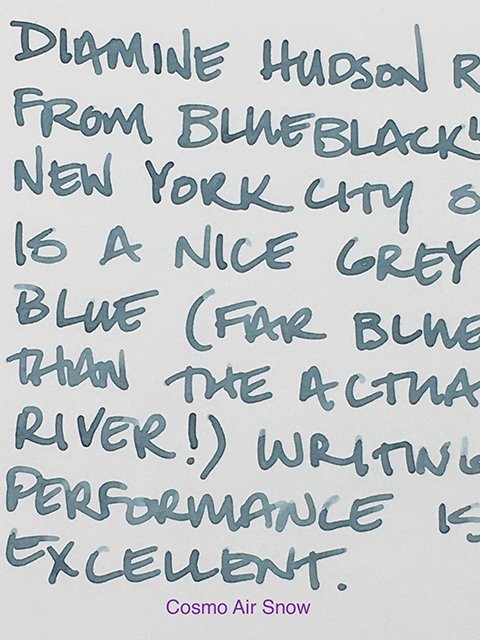 DIAMINE HUDSON R
FROM BLUEBLACK
NEW YORK CITY S
IS A NICE GREY
BLUE (FAR BLUE
THAN THE ACTUA
RIVER!) WRITING
PERFORMANCE IS
EXCELLENT.
Cosmo Air Snow